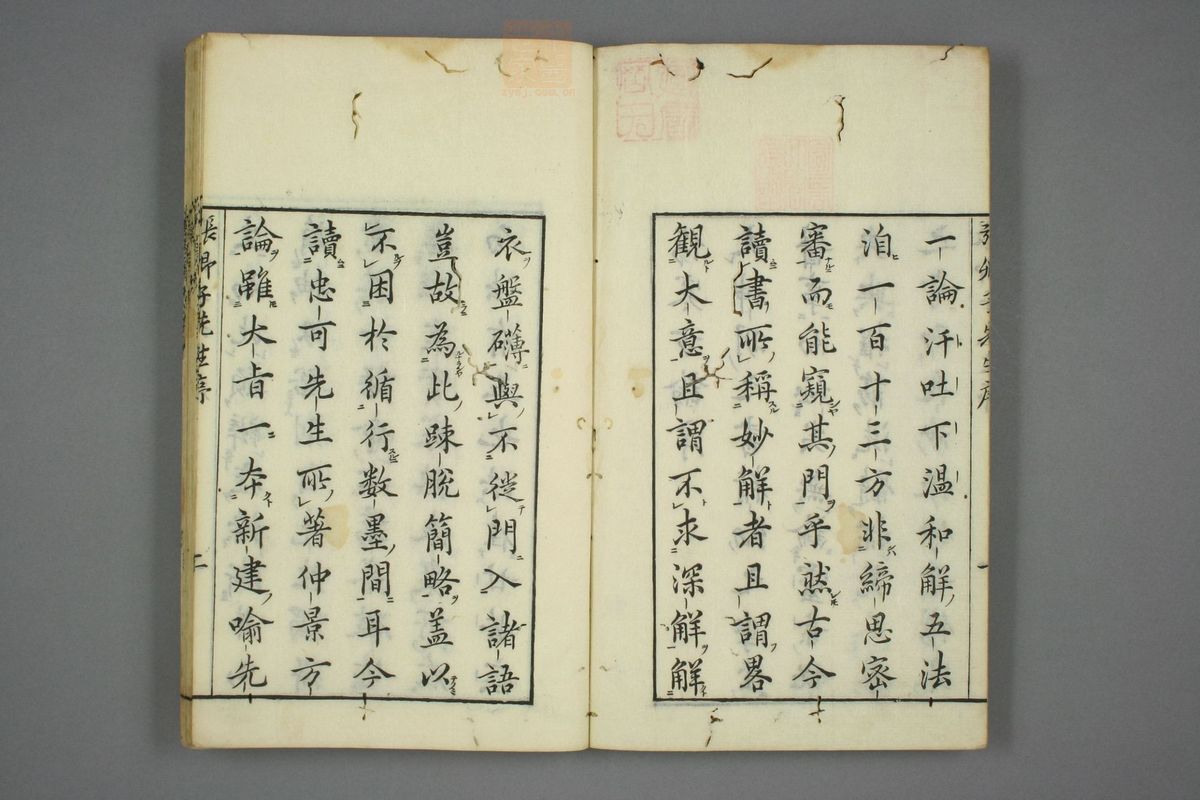 一論汗吐下温和解五法
洎一百十三方非締思密
審而能窺其門乎然古今
讀書所稱妙解者且謂畧
観大意且謂不求深解解
衣盤礴與不從門入諸語
豈故為此踈脱簡略盖以
不困於循行数墨間耳今
讀忠可先生所著仲景方
論雖大旨一本新建喻先
長卿子先生序
二
zysj.com.cn